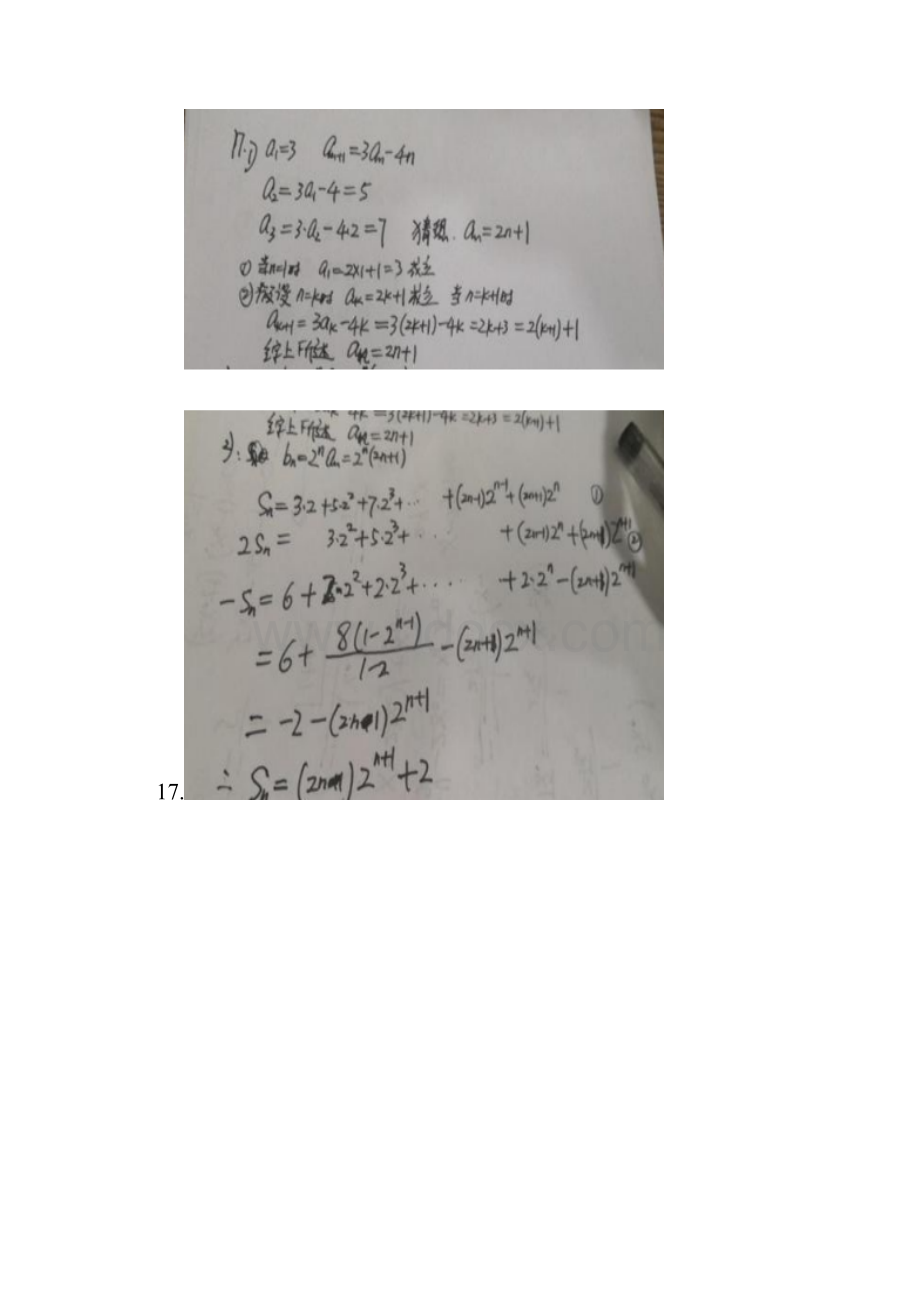 17.1) a₁=3 aₙ₊₁=3aₙ-4n
a₂=3a₁-4=5
a₃=3·a₂-4·2=7 猜想. aₙ=2n+1
① 当n=1时 a₁=2×1+1=3 成立
② 假设 n=k时 aₖ=2k+1 成立 当n=k+1时
aₖ₊₁=3aₖ-4k=3(2k+1)-4k=2k+3=2(k+1)+1
综上所述 aₙ=2n+1
4k=3(2k+1)-4k=2k+3=2(k+1)+1
综上所述 aₙ=2n+1
2): bₙ=2ⁿaₙ=2ⁿ(2n+1)
Sₙ=3·2+5·2²+7·2³+… +(2n-1)2ⁿ⁻¹+(2n+1)2ⁿ ①
2Sₙ= 3·2²+5·2³+… +(2n-1)2ⁿ+(2n+1)2ⁿ⁺¹ ②
-Sₙ=6+2·2²+2·2³+… +2·2ⁿ-(2n+1)2ⁿ⁺¹
=6+8(1-2ⁿ⁻¹)/1-2-(2n+1)2ⁿ⁺¹
=-2-(2n-1)2ⁿ⁺¹
∴ Sₙ=(2n-1)2ⁿ⁺¹+2
17.